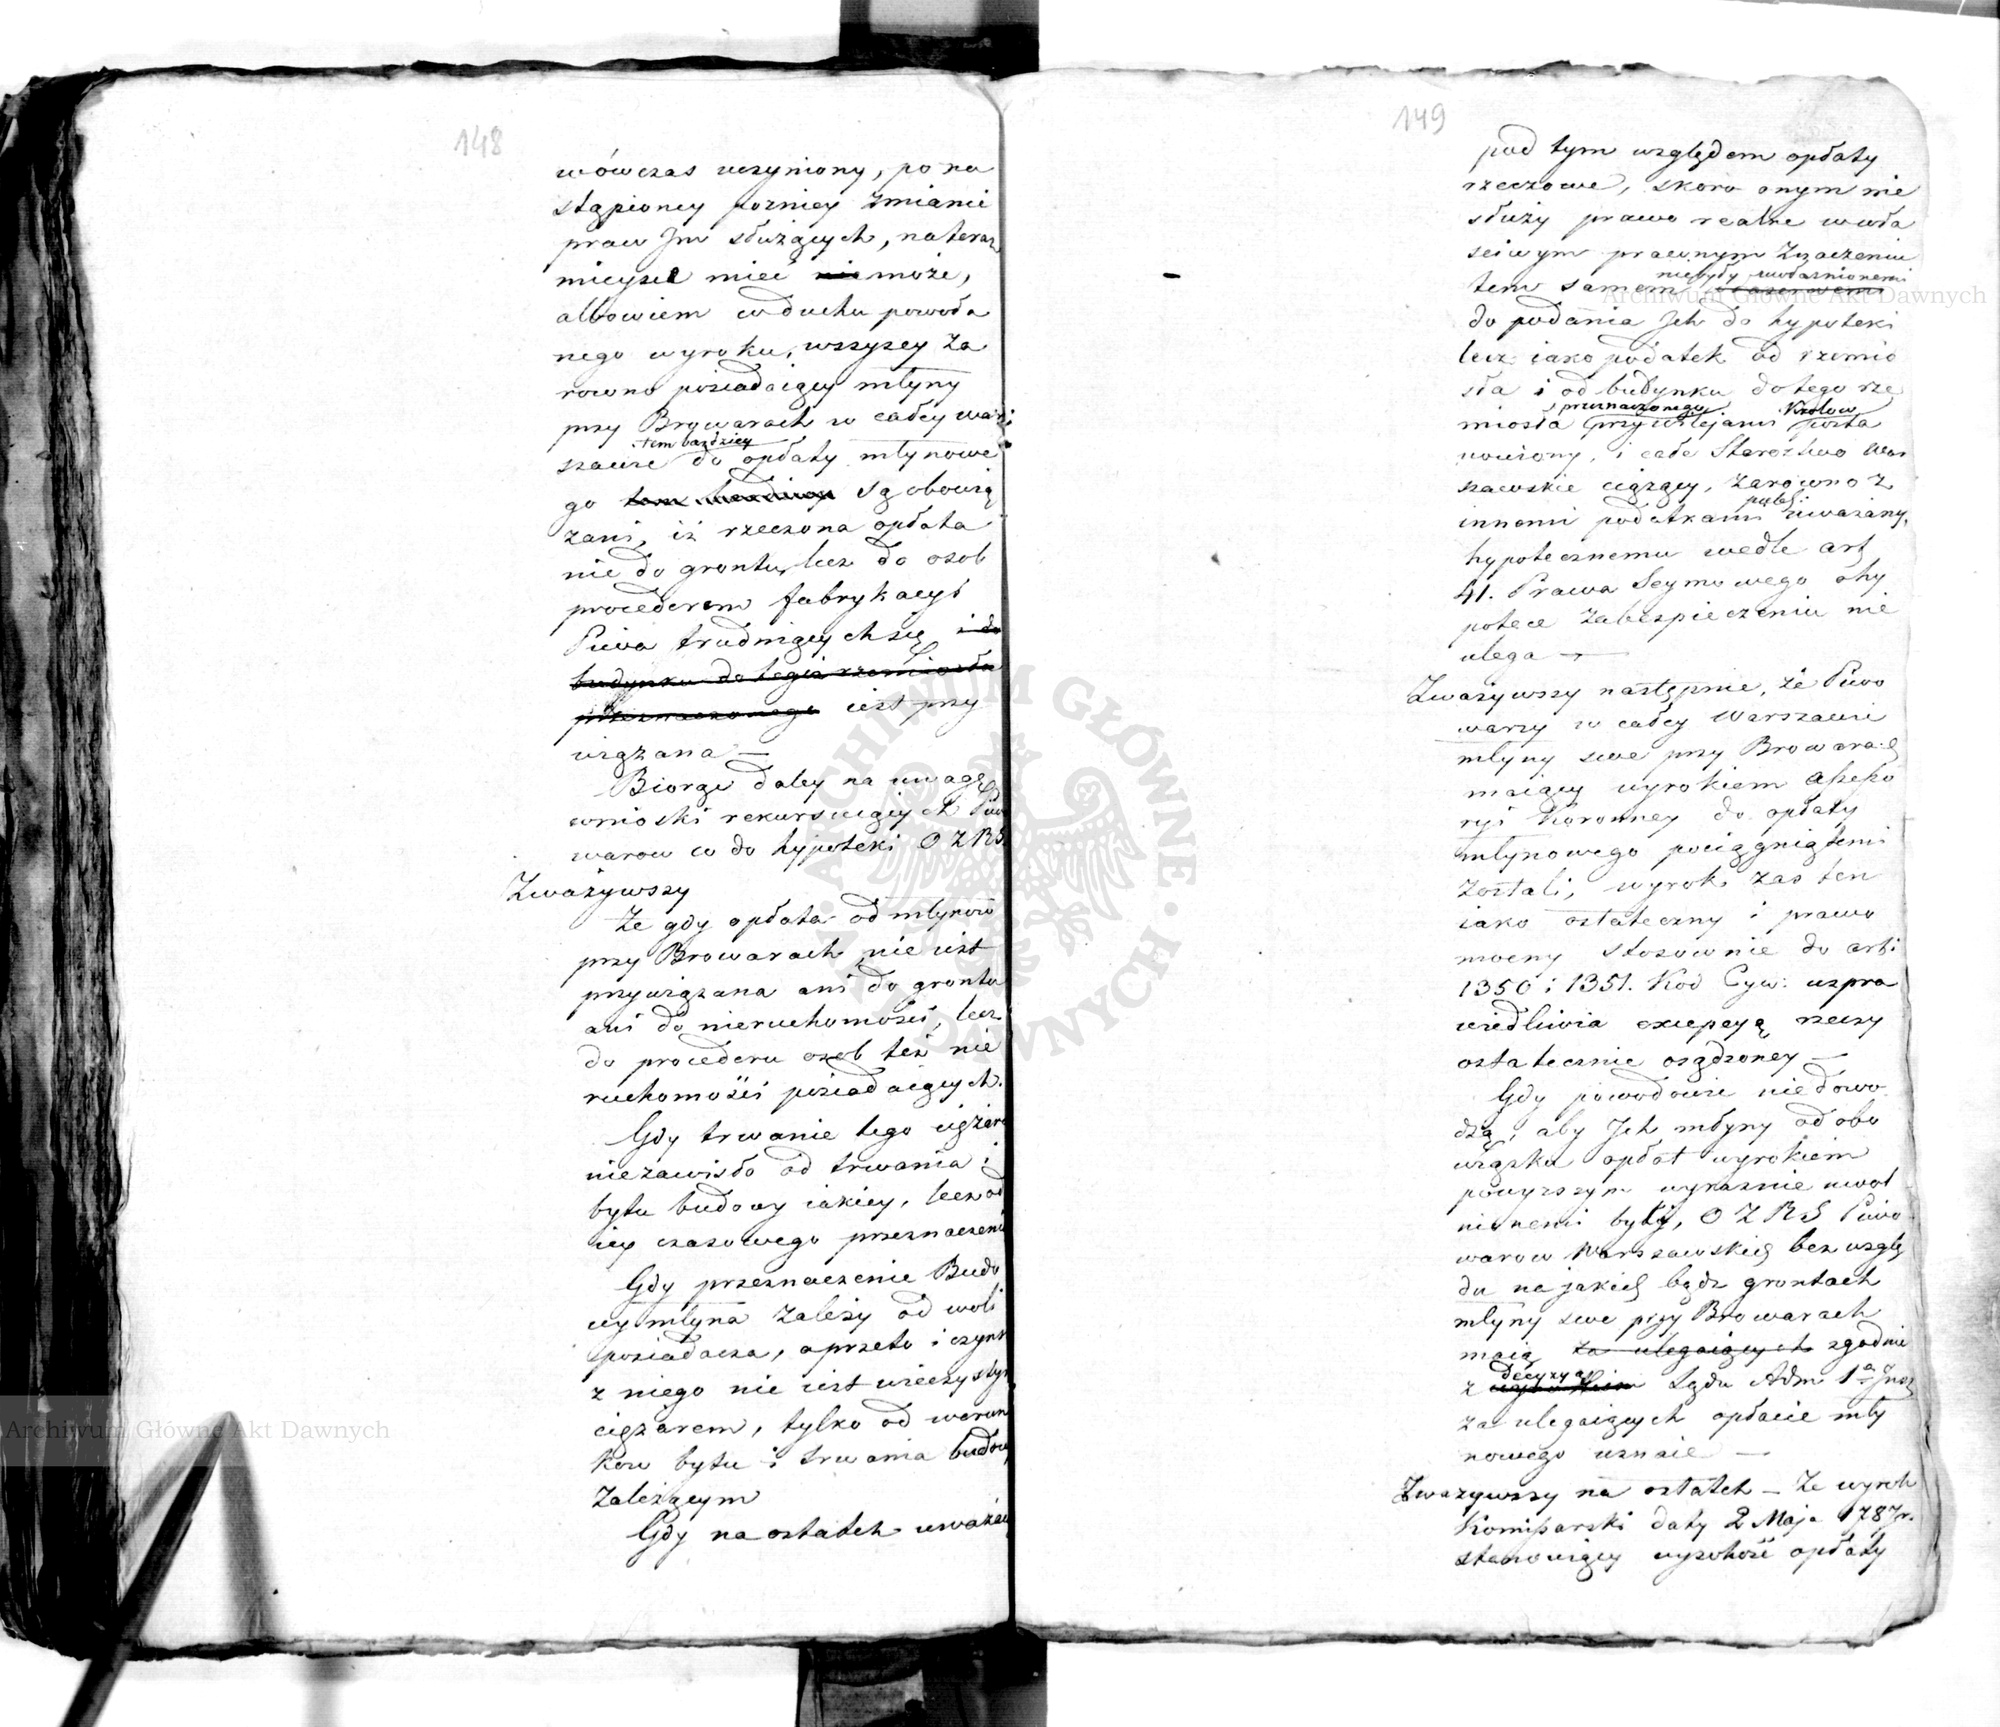 148
wówczas uczyniony, po na
stąpioney pozniey zmianie
praw Im służących, na teraz
mieysce mieć nie może,
albowiem w duchu powoła
nego wyroku, wszyscy za
rowno posiadaiący młyny
przy Browarach w całey War
tem bardziey
szawie do opłaty młynowe
go tem bardziey są obowią
zani, iż rzeczona opłata
nie do gruntu, lecz do osob
procederem fabrykacyi
Piwa trudniących się i do
budynku do tegoż rzemiosła
przeznaczonego iest przy
wiązana —
Biorąc daley na uwagę
wnioski rekursuiących Piwo
warow co do hypoteki O Z R S.
Zważywszy
że gdy opłata od młynow
przy Browarach nie iest
przywiązana ani do gruntu
ani do nieruchomości, lecz
do procederu osob też nie
ruchomości posiadaiących.
Gdy trwanie tego ciężaru
niezawisło od trwania i
bytu budowy iakiey, lecz od
iey czasowego przeznaczenia
Gdy przeznaczenie Budo
wy młyna zależy od woli
posiadacza, a przeto i czynsz
z niego nie iest wieczystym
ciężarem, tylko od warun
kow bytu i trwania budowy
zależącym
Gdy na ostatek uważać
149
pod tym względem opłaty
rzeczowe, skoro onym nie
służy prawo realne w wła
sciwym prawnym znaczeniu
niebyły uwłasnionemi
tem samem
do podania Ich do hypoteki
lecz iako podatek od rzemio
sła i od budynku do tego rze
przeznaczonego Krolow
miosła przywilejami posta
nowiony, i całe Starostwo War
szawskie ciążący, zarowno z
publ:
innemi podatkami uważany,
hypotecznemu wedle art
41. Prawa Seymowego o hy
potece zabespieczeniu nie
ulega —
Zważywszy następnie, że Piwo
warzy w całey Warszawie
młyny swe przy Browarach
maiący wyrokiem Assesso
ryi Koronney do opłaty
młynowego pociągniętemi
zostali, wyrok zas ten
iako ostateczny i prawo
mocny stosownie do art:
1350 i 1351. Kod Cyw: uspra
wiedliwia excepcyą rzeczy
ostatecznie osądzoney —
Gdy powodowie nie dowo
dzą, aby Ich młyny od obo
wiązku opłat wyrokiem
powyższym wyraznie uwol
nionemi były, O Z R S Piwo
warow Warszawskich bez wzglę
du na jakich bądz gruntach
młyny swe przy Browarach
maią za ulegaiących zgodnie
decyzyą
z wyrokiem Sądu Adm 1ª Insz
za ulegaiących opłacie mły
nowego uznaie —
Zważywszy na ostatek — że wyrok
Komissarski daty 2 Maja 1787 r.
stanowiący wysokość opłaty
Archiwum Główne Akt Dawnych
Archiwum Główne Akt Dawnych
ARCHIWUM GŁÓWNE AKT DAWNYCH